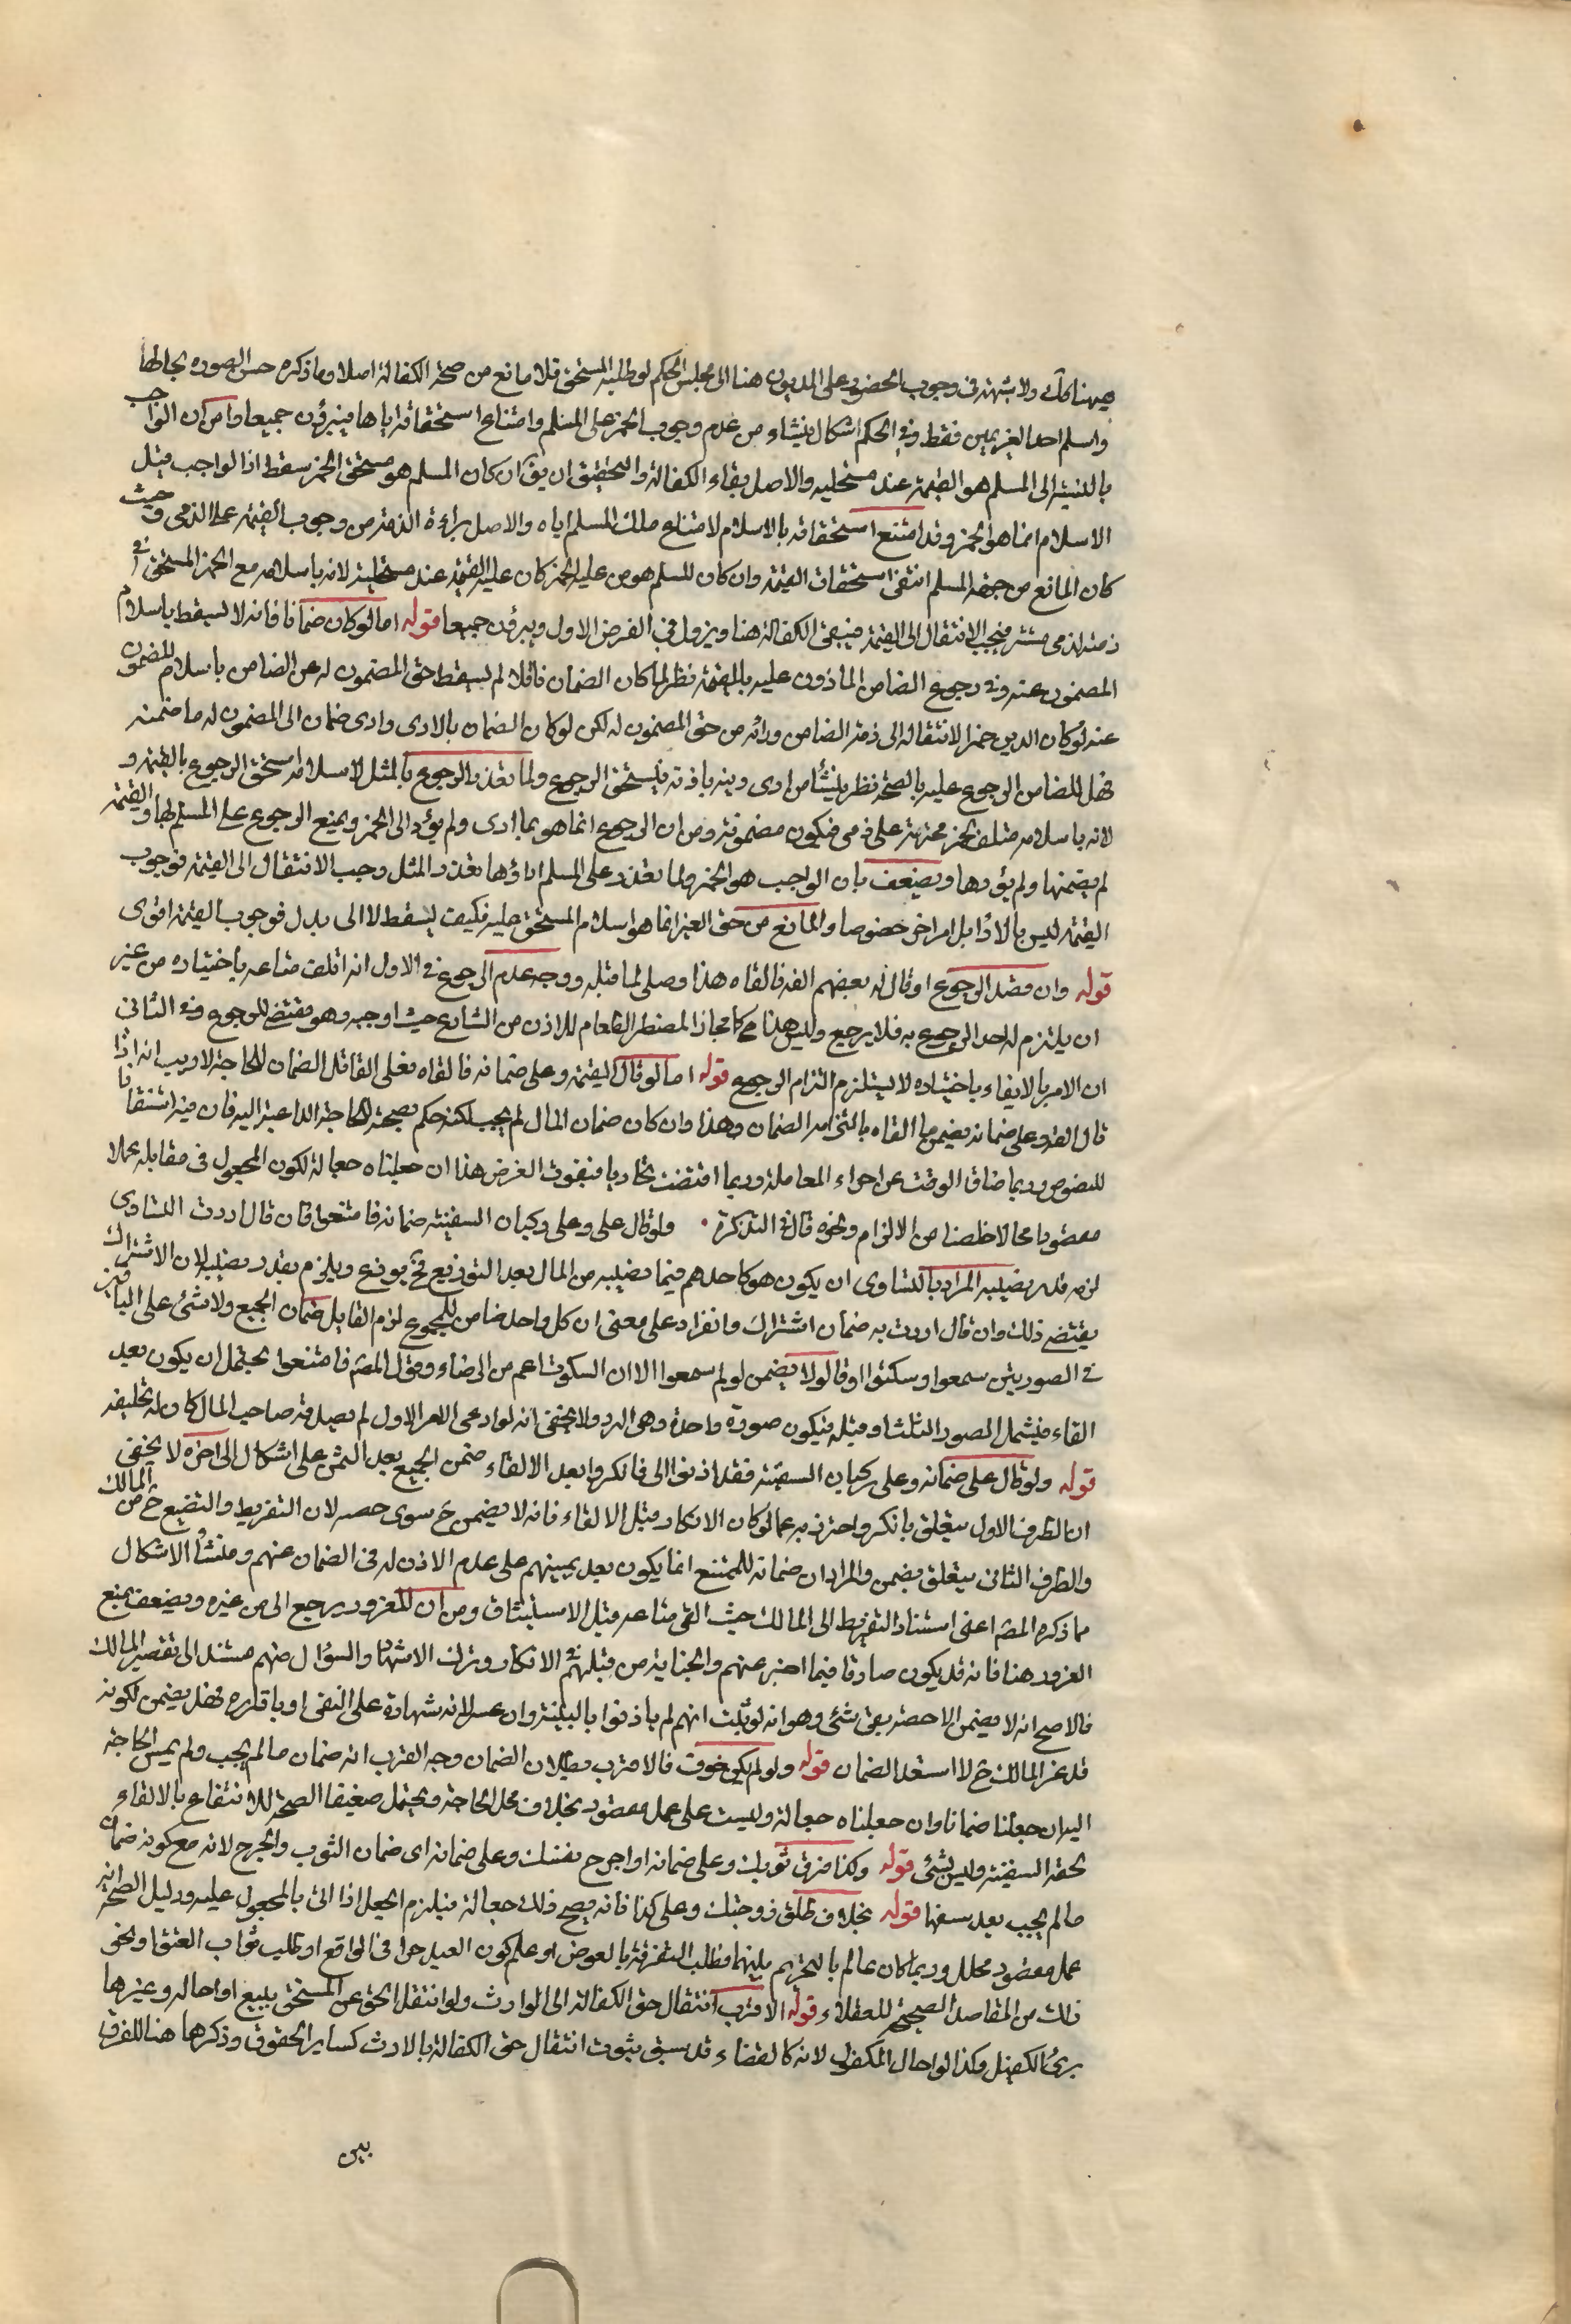 ههنا كذلك ولا شبهة في وجوب الحضور على المديون هنا الى مجلس الحكم لو طلبه المستحق فلا مانع من صحة الكفالة اصلا وما ذكره حسن الصورة بحالها
واسلم احد الغريمين فقط وفي الحكم اشكال ينشاء من عدم وجوب الخمر على المسلم وامتناع استحقاقه اياها فيبرؤن جميعا ومن ان الواجب
بالنسبة الى المسلم هو القيمة عند مستحليه والاصل بقاء الكفالة والتحقيق ان يق ان كان المسلم هو مستحق الخمر سقط اذ الواجب قبل
الاسلام انما هو الخمر وقد امتنع استحقاقه بالاسلام لامتناع ملك المسلم اياه والاصل براءة الذمة من وجوب القيمة على الذمي وحيث
كان المانع من جهة المسلم انتفى استحقاق القيمة وان كان المسلم هو من عليه الخمر كان عليه القيمة عند مستحليه لانه باسلامه مع الخمر المستحق في
ذمته لذمي مستتر فيجب الانتقال الى القيمة فيبقى الكفالة هنا ويزول في الفرض الاول ويبرؤن جميعا قوله اما لو كان ضمانا فانه لا يسقط باسلام
المضمون عنه وفي رجوع الضامن الماذون عليه بالقيمة نظر لما كان الضمان ناقلا لم يسقط حق المضمون له عن الضامن باسلام المضمون
عنه لو كان الدين خمرا لانتقاله الى ذمة الضامن وبرائه من حق المضمون له لكن لو كان الضمان بالاذن وادى ضمان الى المضمون له ما ضمنه
فهل للضامن الرجوع عليه بالصحة نظر ينشأ من ادى دينه باذنه فيستحق الرجوع ولما تعذر الرجوع بالمثل لاسلامه استحق الرجوع بالقيمة و
لانه باسلامه متلف لخمر محترمة على ذمي فيكون مضمونة ومن ان الرجوع انما هو بما ادى ولم يؤد الى الخمر ويمنع الرجوع على المسلم لها والقيمة
لم يضمنها ولم يؤدها ويضعف بان الواجب هو الخمر ولما تعذر على المسلم اداؤها تعذر المثل وجب الانتقال الى القيمة فوجوب
القيمة ليس بالاداء بل امر اخر خصوصا والمانع من حق الغير انما هو اسلام المستحق عليه فكيف يسقط لا الى بدل فوجوب القيمة اقوى
قوله وان قصد الرجوع او قال له بعضهم القه فالقاه هذا وصلى لما قبله ووجه عدم الرجوع في الاول انه اتلف متاعه باختياره من غير
ان يلتزم له احد الرجوع به فلا يرجع وليس هذا كما مجاز المضطر الطعام للاذن من الشارع حيث اوجبه وهو مقتض للرجوع وفي الثاني
ان الامر بالايفاء باختياره لا يستلزم التزام الرجوع قوله اما لو قال القيمة وعلى ضمانه فالقاه فعلى القائل الضمان للحاجة لا ريب انه اذا
قال القه وعلى ضمانه يضمن ما القاه بالتزامه الضمان وهذا وان كان ضمان المال لم يجب لكنه حكم بصحته للحاجة الداعية اليه فان فيه استنقاذا
للنفوس وربما ضاق الوقت عن اجراء المعاملة وربما اقتضت تجاريا فيفوت الغرض هذا ان جعلناه جعالة لكون المجعول في مقابلة عملا
مقصودا محالا خلصنا من الالزام ونحوه قال في التذكرة · ولو قال على وعلى ركبان السفينة ضمانه فامتنعوا فان قال اردت التساوى
لزمه قدر نصيبه المراد بالتساوى ان يكون هو كاحدهم فيما يصيبه من المال بعد التوزيع فح يوزع ويلزم بقدر نصيبه لان الاشتراك
يقتضي ذلك وان قال اردت به ضمان اشتراك وانفراد على معنى ان كل واحد ضامن للمجموع لزم القايل ضمان الجميع ولا شئ على الباقين
في الصورتين سمعوا وسكتوا او قالوا لا يضمن لو لم سمعوا الا ان السكوت اعم من الرضاء وقول المصر فامتنعوا يحتمل ان يكون بعد
القاء فيشمل الصور الثلث او قبله فيكون صورة واحدة وهي الرد ولا يخفى انه لو ادعى الامر الاول لم يصدقه صاحب المال كان له تحليفه
قوله ولو قال على ضمانه وعلى ركبان السفينة فقد اذنوا الى فانكروا بعد الالقاء ضمن الجميع بعد اليمين على اشكال الى اخره لا يخفى
ان الطرف الاول يتعلق بانكروا احترز به عما لو كان الانكار قبل الالقاء فانه لا يضمن ح سوى حصته لان التفريط والتضيع ح من المالك
والطرف الثاني يتعلق بضمن والمراد ان ضمانه للممتنع انما يكون بعد يمينهم على عدم الاذن له في الضمان عنهم ومنشأ الاشكال
مما ذكره المصر اعنى استناد التفريط الى المالك حيث القى متاعه قبل الاستيثاق ومن ان المغرور يرجع الى من غره ويضعف بمنع
الغرور هنا فانه قد يكون صادقا فيما اخبر عنهم والجناية من قبلهم في الانكار وترك الاشهاد والسؤال منهم مستند الى تقصير المالك
فالاصح انه لا يضمن الا حصته بقى شئ وهو انه لو ثبت انهم لم ياذنوا بالبينة وان عسر لانه شهادة على النفى او باقراره فهل يضمن لكونه
قد غر المالك ح لا استبعد الضمان قوله ولو لم يكن خوف فالاقرب بطلان الضمان وجه القرب انه ضمان ما لم يجب ولم يمس الحاجة
اليه ان جعلنا ضمانا وان جعلناه جعالة وليست على عمل مقصود بخلاف محل الحاجة ويحتمل ضعيفا الصحة للانتفاع بالالقاء
لخفة السفينة وليس بشئ قوله وكذا مزق ثوبك وعلى ضمانه او اجرح نفسك وعلى ضمانه اى ضمان الثوب والجرح لانه مع كونه ضمان
ما لم يجب يعد سفها قوله بخلاف طلق زوجتك وعلى كذا فانه يصح ذلك جعالة فيلزم الجعل اذا اتى بالمجعول عليه ودليل الصحة انه
عمل مقصود محلل وربما كان عالم بالتحريم بينهما فطلب التفرقة بالعوض او علم كون العبد حرا في الواقع او طلب ثواب العتق او نحو
ذلك من المقاصد الصحيحة للعقلاء قوله الاقرب انتقال حق الكفالة الى الوارث ولو انتقل الحق عن المستحق ببيع او احالة وغيرها
برئ الكفيل وكذا لو احال المكفول لانه كالقضاء قد سبق ثبوت انتقال حق الكفالة بالارث كساير الحقوق وذكرها هنا للفرق
بين